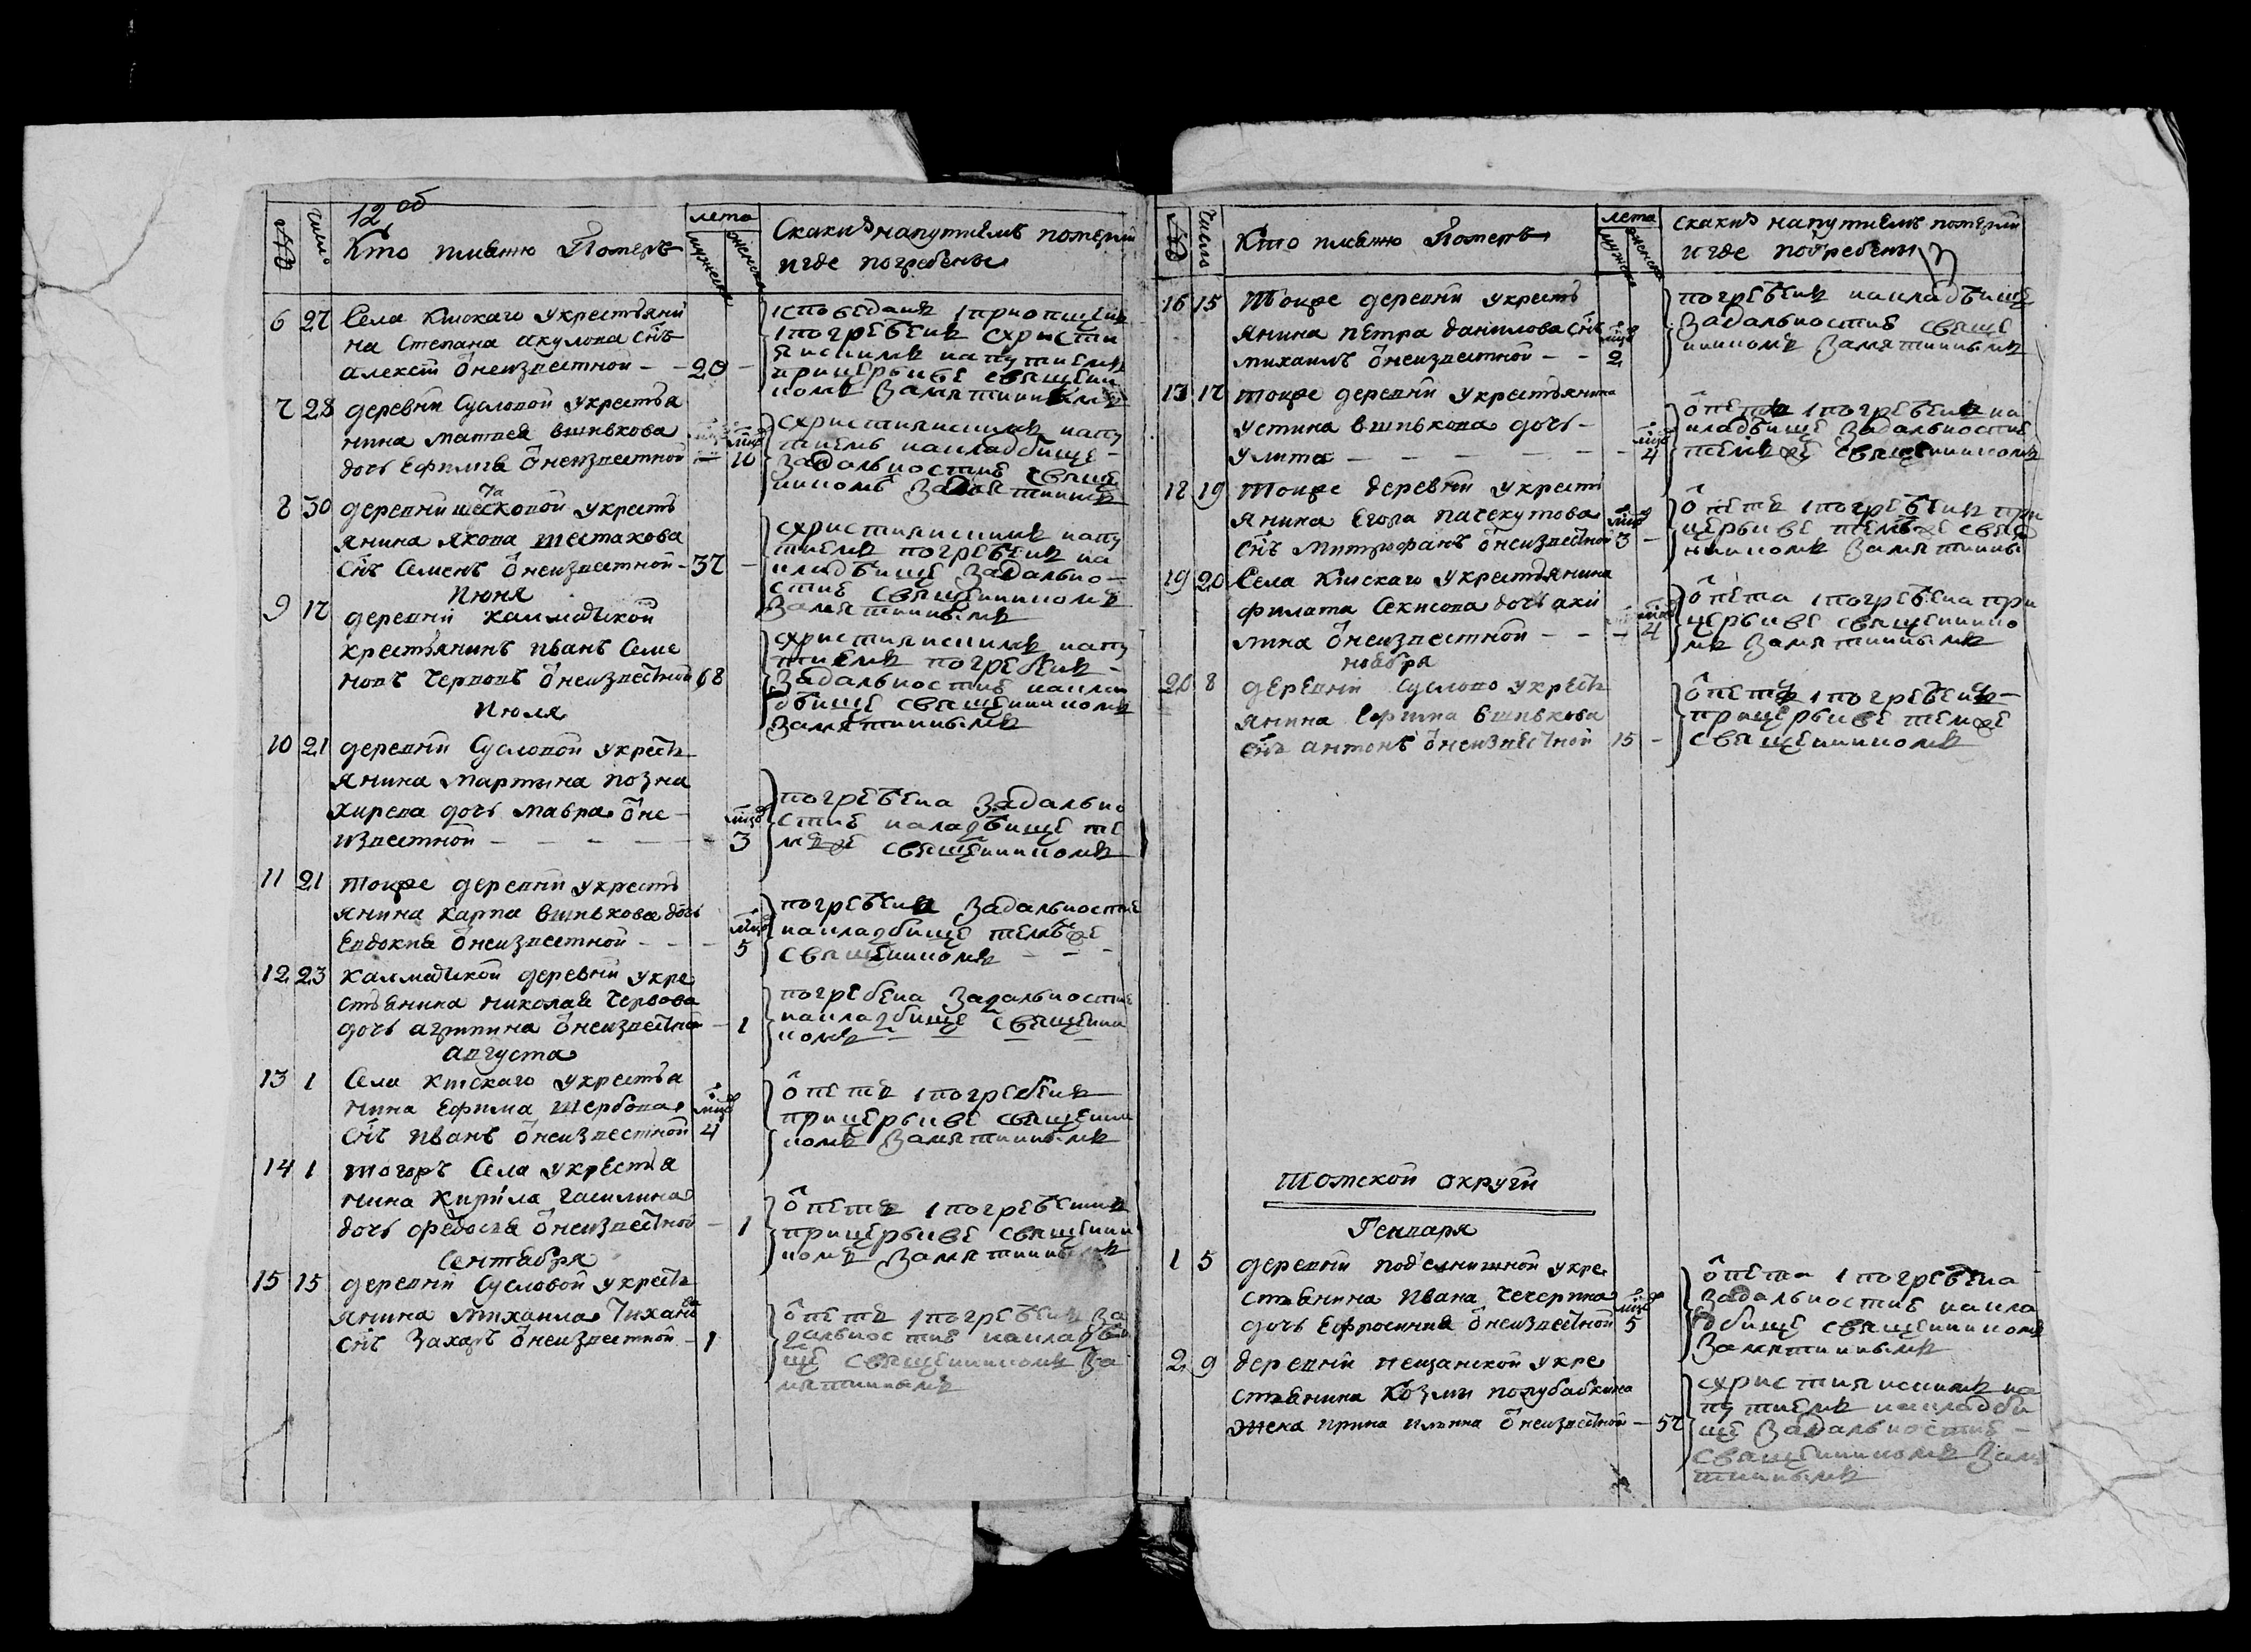 12 об
№ число Кто имянно Померъ лета мужска женска Скакимъ напутиемъ померли
и где погребены
6 27 Села Кійскаго укрестьяни
на Степана акулова снъ
алексѣй ѿнеизвестной - - 20 -
исповеданъ iприопщенъ
iпогребенъ схристи
янскимъ напутиемъ
прицерькве священи
комъ Замятинымъ
7 28 деревни Сусловой укрестья
нина матвея вшивкова
дочь Ефимия ѿнеизвестной - мцов 10
схристиянскимъ напу
тиемъ накладбище -
Задальностию свяще
нникомъ Замятинымъ
8 30 деревни укресть
янина якова шестакова
снъ Семенъ ѿнеизвестной - 37 -
схристиянскимъ напу
тиемъ погребенъ на
кладбище Задально-
стию священникомъ
Замятинымъ
Июня
9 17 деревни
крестьянинъ иванъ Семе
новъ Червовъ ѿнеизвестной 68
схристиянскимъ напу
тиемъ погребенъ -
Задальностию накла
дбище священникомъ
Замятинымъ
Июля
10 21 деревни Сусловой укресть
янина Мартына позна
хирева дочь мавра ѿне-
известной - - - - - - мцов 3
погребена Задально
стию накладбище те
мже священникомъ
11 21 тоже деревни укресть
янина карпа вшивкова дочь
Евдокия ѿнеизвестной - - - мцов 5
погребена Задальностию
накладбище темъже
священникомъ - - -
12 23 деревни укре
стьянина николая Червова
дочь агрипина ѿнеизвестной - 1
погребена Задальностию
накладбище священни
комъ - - - -
августа
13 1 Села кійскаго укрестья
нина Ефима щербова
снъ иванъ ѿнеизвестной мцов 4
ѿпетъ iпогребенъ
прицерькве священи
комъ Замятинымъ
14 1 тогожъ Села укрестья
нина Кирила гасилина
дочь федосья ѿнеизвестной - 1
ѿпетъ iпогребенъ
прицерькве священи
комъ Замятинымъ
Сентября
15 15 деревни Сусловой укресть
янина Михаила Тихано
ва
снъ Захаръ ѿнеизвестной - 1
ѿпетъ iпогребенъ За
дальностию накладби
ще священникомъ За
мятинымъ
№ Число Кто имянно Померъ лета мужска женска скакимъ напутиемъ померли
и где погребены
16 15 Тоже деревни укресть
янина петра данилова снъ
михаилъ ѿнеизвестной - - мцов 2
погребенъ накладбище
Задальностию свяще
нникомъ Замятинымъ
17 17 тоже деревни укрестьянина
устина вшивкова дочь -
улита - - - - - - - мцов 4
ѿпета iпогребена на
кладбище Задальностию
темъже священникомъ
18 19 Тоже деревни укресть
янина Егора пачекутова
снъ митрофанъ ѿнеизвестной мцов 3 -
ѿпетъ iпогребенъ при
церькве темъже свяще
нникомъ Замятинымъ
19 20 Села Кійскаго укрестьянина
филата Сехисова дочь аки
лина ѿнеизвестной - - - мцов 4
ѿпета iпогребена при
церькве священнико
мъ Замятинымъ
ноября
20 8 деревни Суслово укресть
янина Ефима вшивкова
снъ антонъ ѿнеизвестной 15 -
ѿпетъ iпогребенъ -
прицерькве темже
священникомъ
Томской округи
Генваря
1 5 деревни подъелнишной укре
стьянина Ивана чечерина
дочь Ефросиния ѿнеизвестной мцов 5
ѿпета iпогребена
Задальностию накла
дбище священникомъ
Замятинымъ
2 9 деревни песцанской укре
стьянина Козми полубабкина
жена ирина илина ѿнеизвестной - 57
схристиянскимъ на
путиемъ накладби
ще Задальностию -
священникомъ Замя
тинымъ